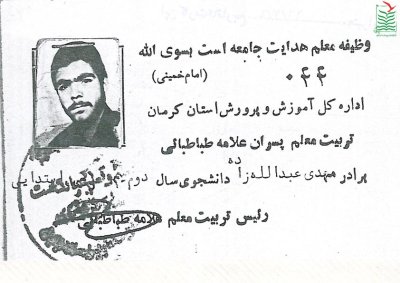 وظیفه معلم هدایت جامعه است بسوی الله
(امام خمینی)
۰۴۴
اداره کل آموزش و پرورش استان کرمان
تربیت معلم پسران علامه طباطبائی
برادر مهدی عبدالله زاده دانشجوی سال دوم ابتدایی
رئیس تربیت معلم علامه طباطبائی